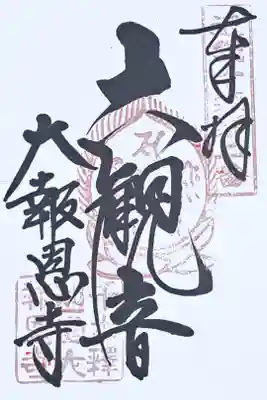 奉拝
六観音
大報恩寺